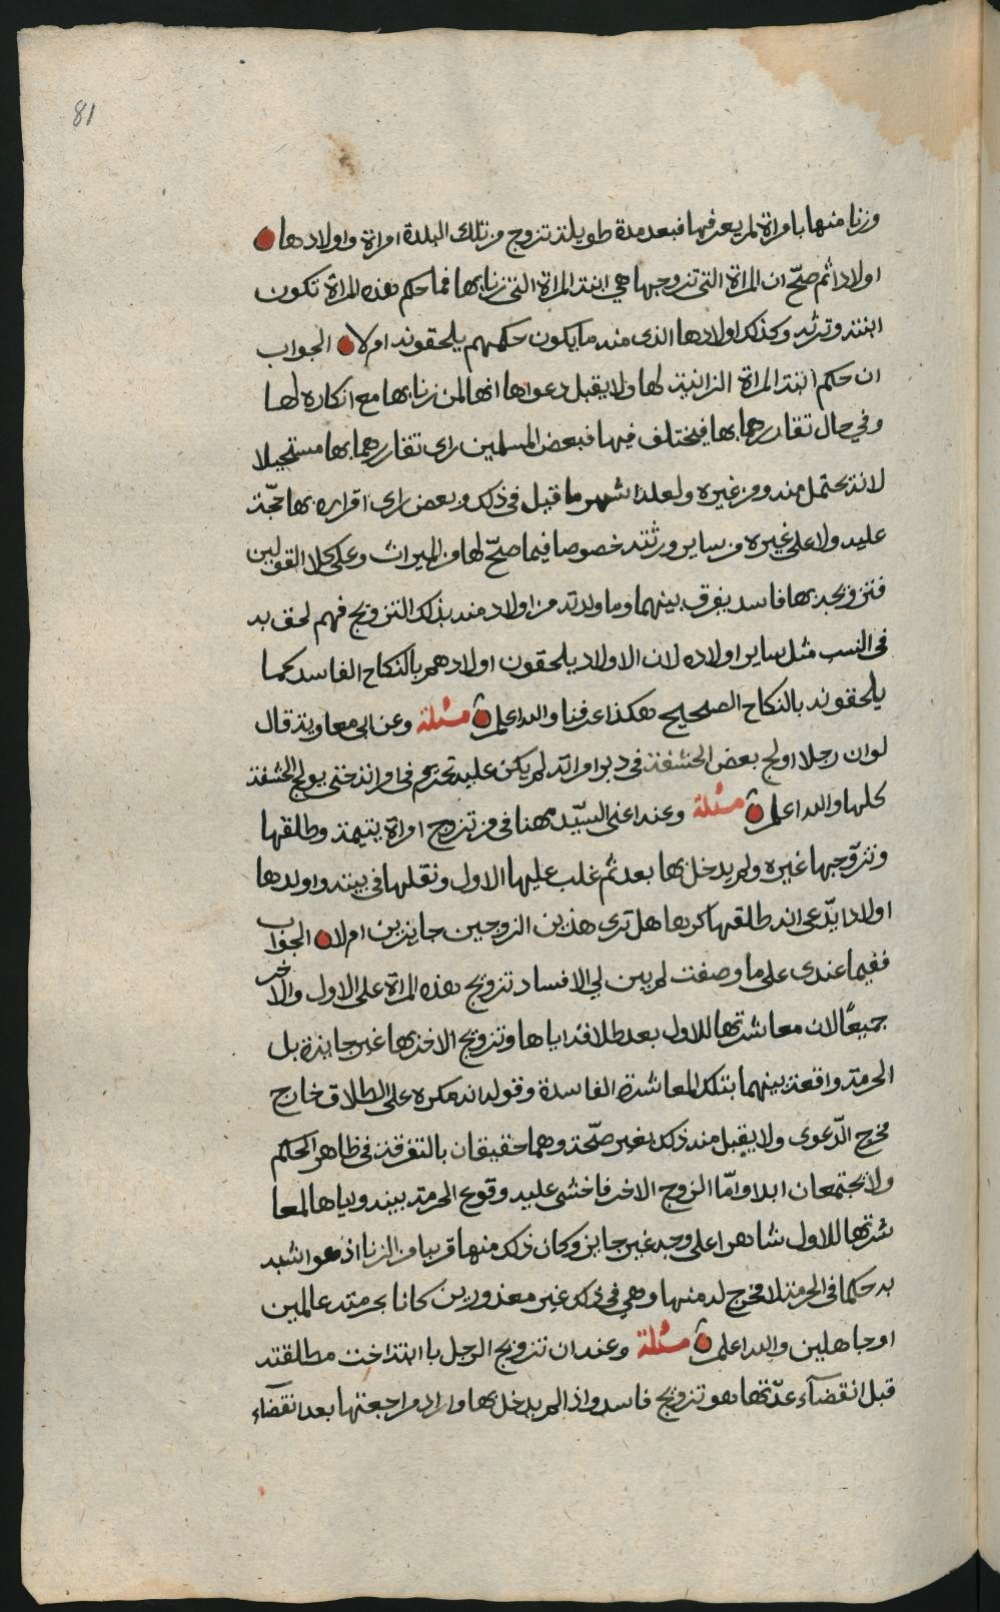 81
وزنا منها بامراة لم يعرفها فبعد مدة طويلة تزوج من تلك البلدة امراة واولادها
اولادا ثم صحّ ان المراة التي تزوجها هي ابنة المراة التي زنا بها فما حكم هذه المراة تكون
ابنته وترثه وكذلك اولادها الذي منه ما يكون حكمهم يلحقونه ام لا الجواب
ان حكم ابنة المراة الزانية لها ولا يقبل دعواها انها لمن زنا بها مع انكاره لها
وفي حال تقاررهما بها فيختلف فيها فبعض المسلمين راى تقاررهما بها مستحيلا
لانه يحتمل منه ومن غيره ولعله اشهر ما قيل في ذلك وبعض راى اقراره بها حجّة
عليه ولا على غيره من ساير ورثته خصوصا فيما صحّ لها من الميراث وعلى كلا القولين
فتزويجه بها فاسد يفرق بينهما وما ولدته من اولاد منه بذلك التزويج فهم لحق به
في النسب مثل ساير اولاده لان الاولاد يلحقون اولادهم بالنكاح الفاسد كما
يلحقونه بالنكاح الصحيح هكذا عرفنا والله اعلم مسئلة وعن ابي معاوية قال
لو ان رجلا اولج بعض الحشفة في دبر امراته لم يكن عليه تحريم في امراته حتى يولج الحشفة
كلها والله اعلم مسئلة وعنه اعني السيّد مهنا في من تزوج امراة يتيمة وطلقها
وتزوّجها غيره ولم يدخل بها بعد ثم غلب عليها الاول ونقلها في بيته واولدها
اولادا يدّعي انه طلقها كرها هل ترى هذين الزوجين جايزين ام لا الجواب
ففيما عندي على ما وصفت لم يبن لي الا فساد تزويج هذه المراة على الاول والاخر
جميعًا لان معاشرتها للاول بعد طلاقه اياها وتزويج الاخر بها غير جايزة بل
الحرمة واقعة بينهما بتلك المعاشرة الفاسدة وقوله انه مكره على الطلاق خارج
مخرج الدّعوى ولا يقبل منه ذلك بغير صحّة وهما حقيقان بالتفرقة في ظاهر الحكم
ولا يجتمعان ابدا وامّا الزوج الاخر فاخشى عليه وقوع الحرمة بينه واياها لمعا
شرتها للاول شاهرا على وجه غير جايز وكان ذلك منها قريبا من الزنا اذ هو اشبه
به حكما في الحرمة لا مخرج له منها وهي في ذلك غير معذورين كانا بحرمته عالمين
او جاهلين والله اعلم مسئلة وعنه ان تزويج الرجل بابنة اخت مطلقته
قبل انقضآء عدّتها هو تزويج فاسد واذا لم يدخل بها واراد مراجعتها بعد انقضآء